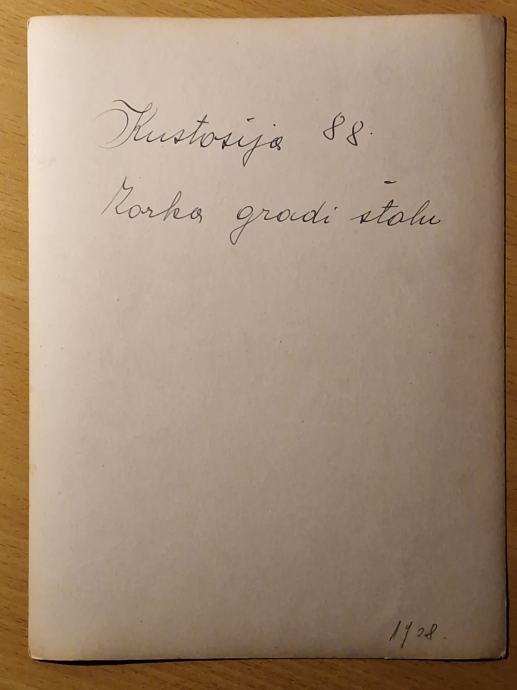 Kustošija 88.
Zorka gradi štalu
1928.